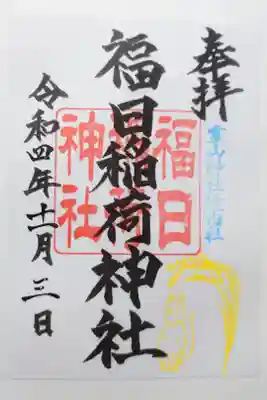 奉拝
福日稲荷神社
福日
神社
令和四年十一月三日